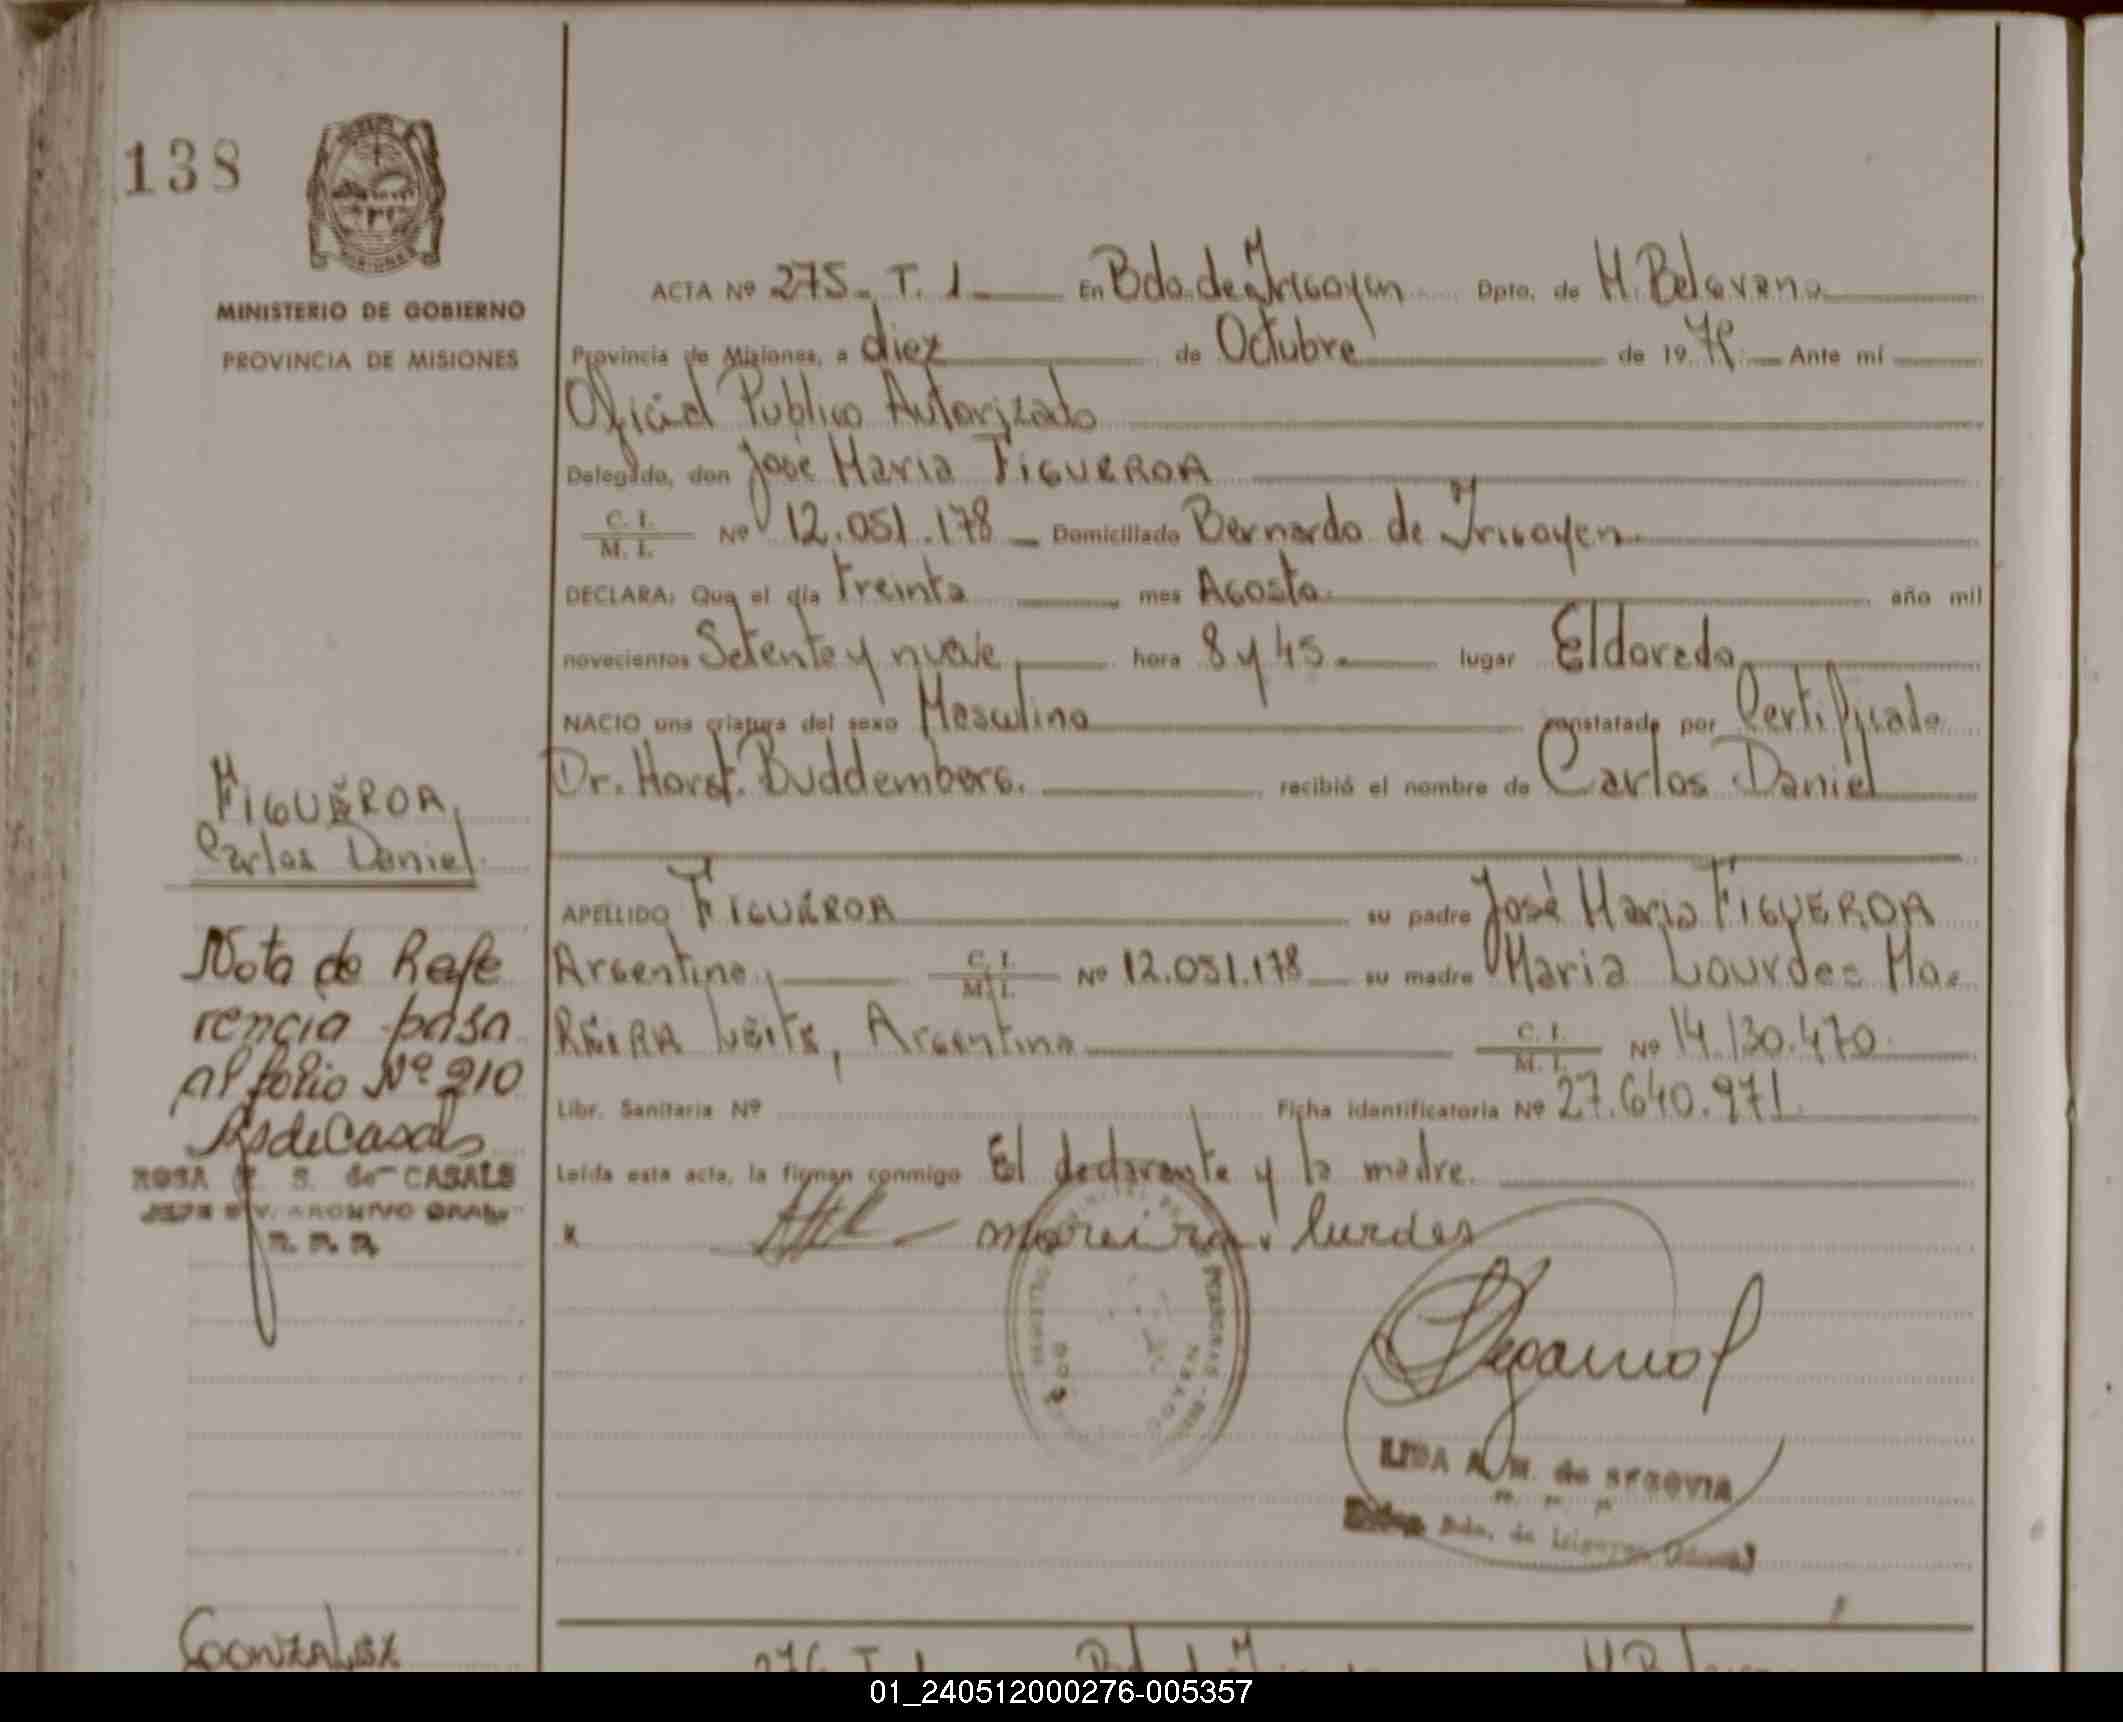 138
MINISTERIO DE GOBIERNO
PROVINCIA DE MISIONES
ACTA Nº 275. T. 1 En Bdo. de Irigoyen Dpto. de M. Belgrano
Provincia de Misiones, a diez de Octubre de 19 79 Ante mí
Oficial Publico Autorizado
Delegado, don José Maria FIGUEROA
C. I. / M. I. Nº 12.051.178 Domiciliado Bernardo de Irigoyen
DECLARA: Que el día treinta mes Agosto año mil
novecientos Setenta y nueve hora 8 y 45 lugar Eldorado
NACIO una criatura del sexo Masculino constatado por Certificado
Dr. Horst. Buddemberg. recibió el nombre de Carlos Daniel
FIGUEROA
Carlos Daniel
APELLIDO FIGUEROA su padre José Maria FIGUEROA
Argentino, C. I. / M. I. Nº 12.051.178 su madre Maria Lourdes MO=
REIRA Argentina C. I. / M. I. Nº 14.130.470
Libr. Sanitaria Nº Ficha identificatoria Nº 27.640.971
Leída esta acta, la firman conmigo El declarante y la madre.
moreira lurdes
Nota de Refe
rencia pasa
al folio Nº 210
ROSA S. de CASALS
ARCHIVO GRAL.
LIDA A. M. de SEGOVIA
Bdo. de Irigoyen
GONZALEZ
276 T. 1
01_240512000276-005357